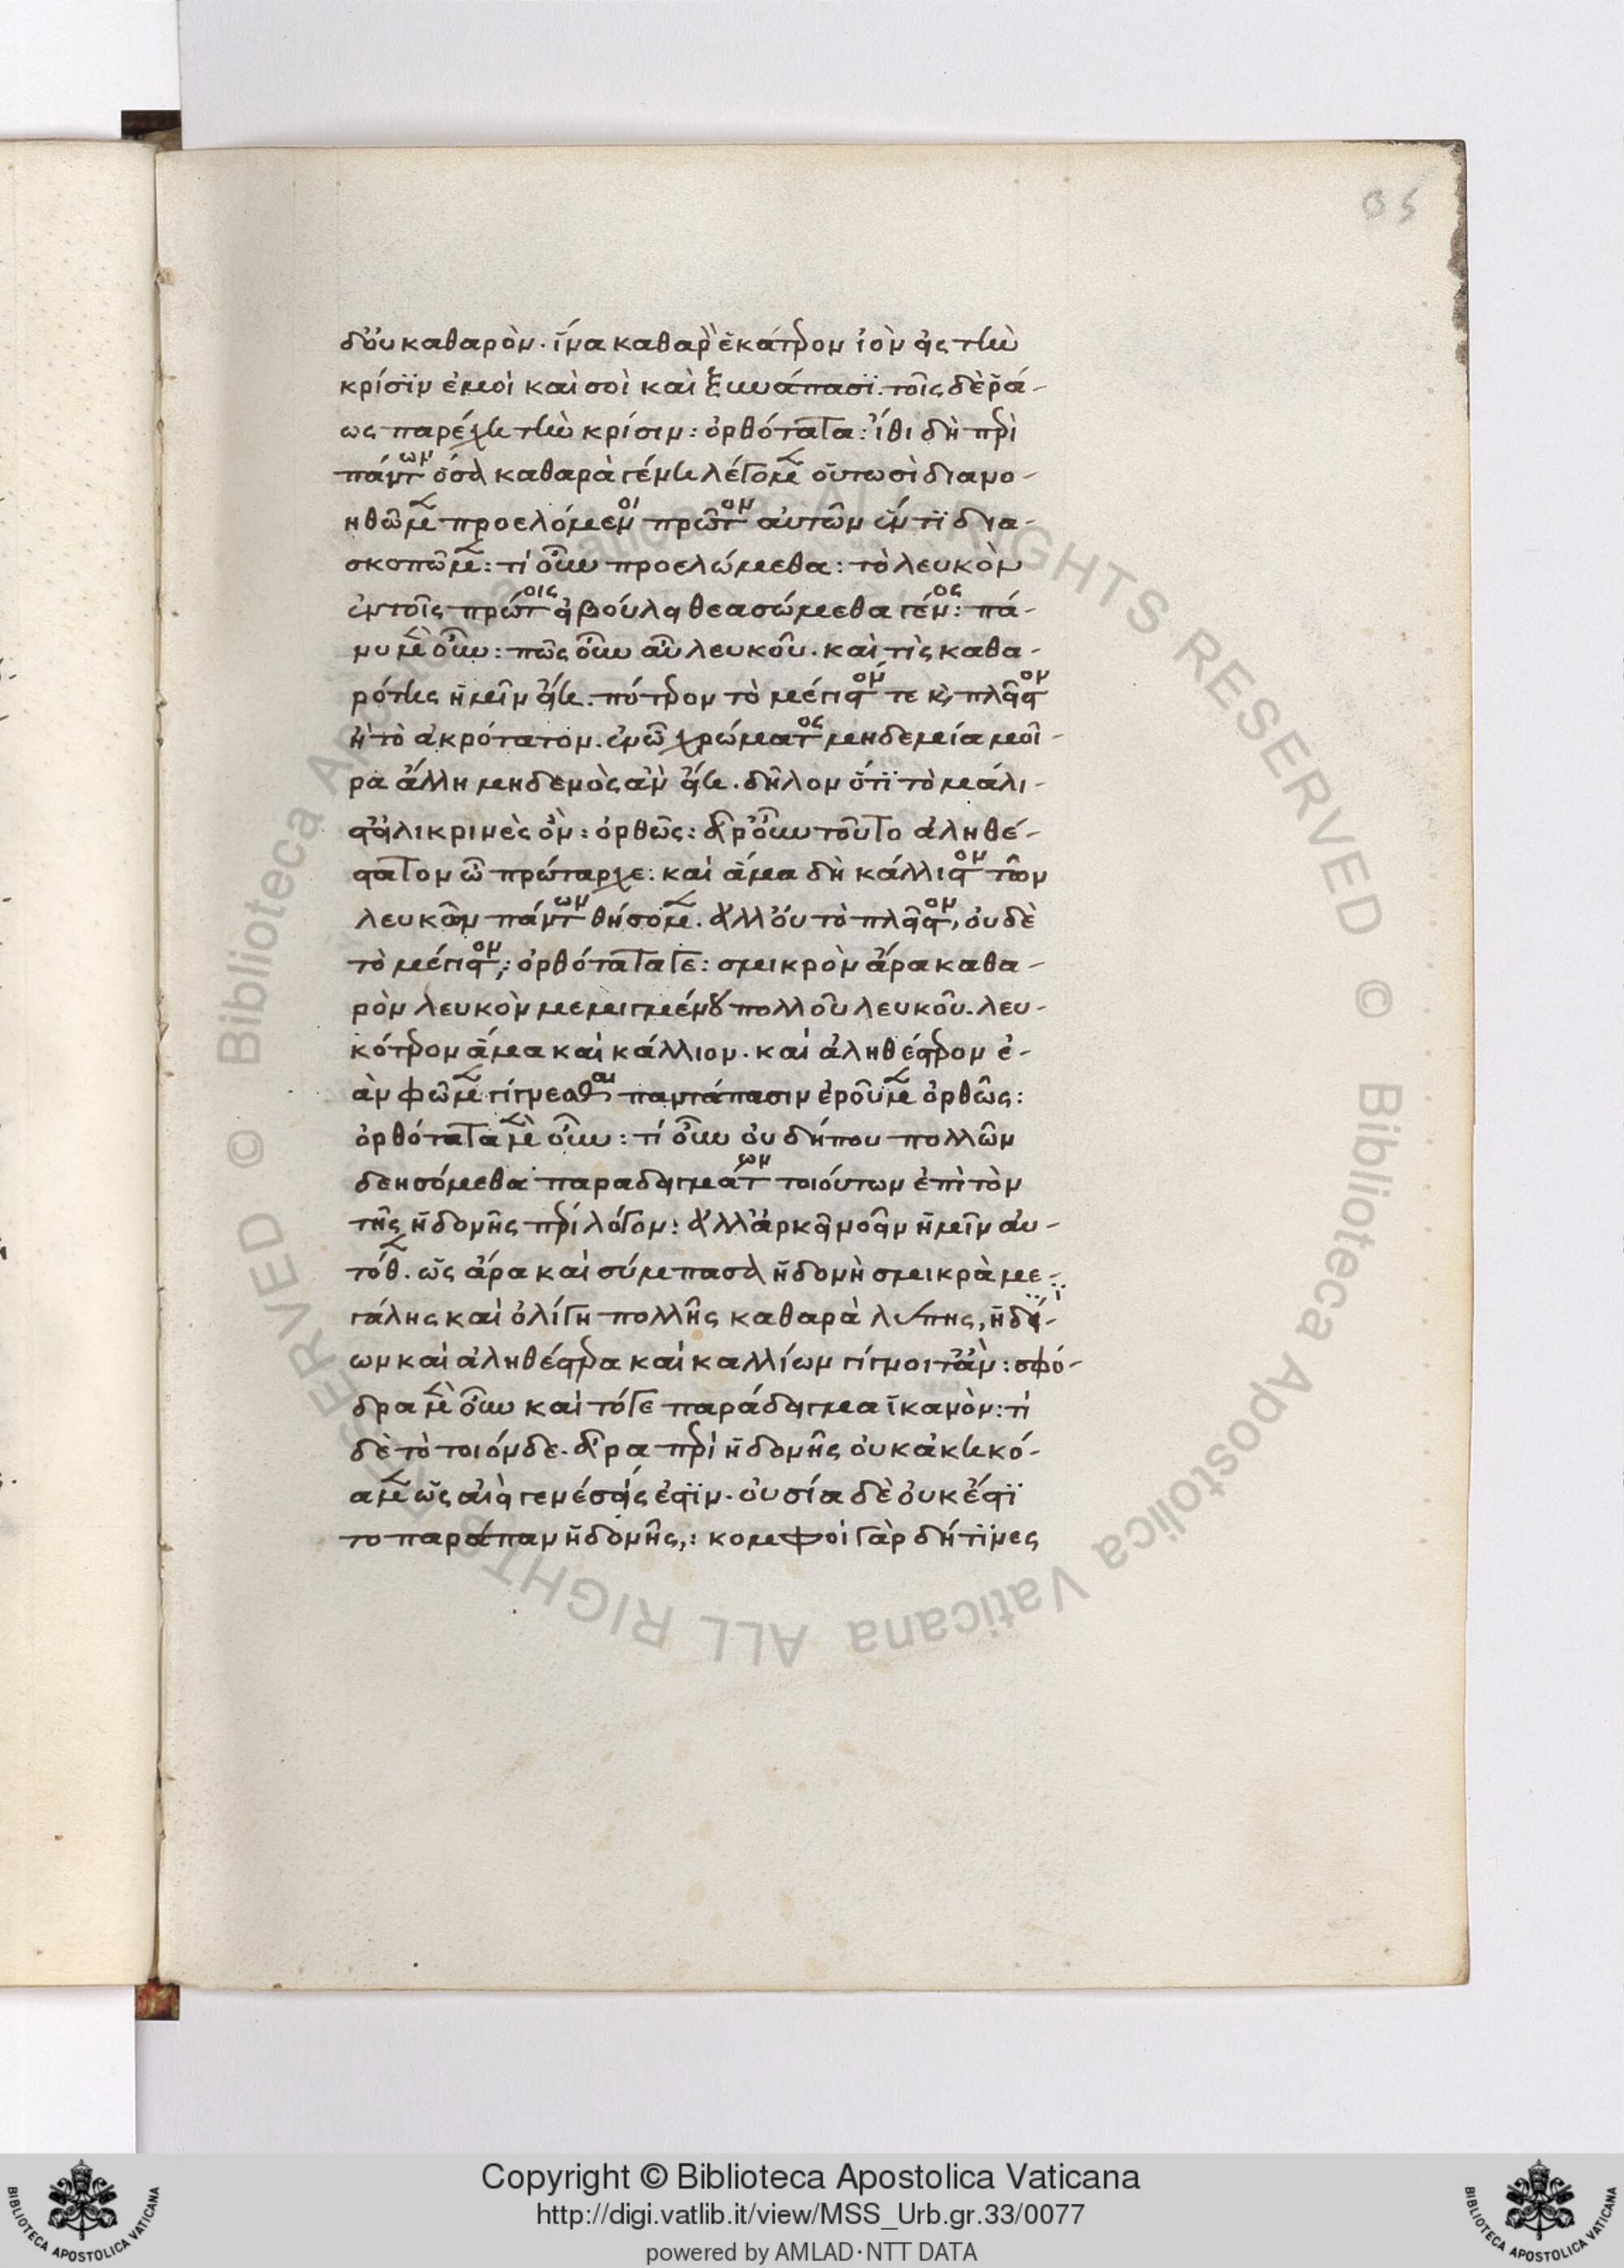 35
δ' οὐ καθαρὸν. ἵνα καθαρὸν ἑκάτερον ἰὸν εἰς τὴν
κρίσιν ἐμοὶ καὶ σοὶ καὶ ξυνάπασι. τοῖσδε ῥά-
ως παρέχει τὴν κρίσιν: ὀρθότατα: ἴθι δὴ περὶ
πάντων ὅσα καθαρὰ γένει λέγομεν οὑτωσὶ διανο-
ηθῶμεν προελόμενοι πρῶτον αὐτῶν ἕν τι δια-
σκοπῶμεν: τί οὖν προελώμεθα: τὸ λευκὸν
ἐν τοῖς πρώτοις εἰ βούλει θεασώμεθα γένος: πά-
νυ μὲν οὖν: πῶς οὖν αὖ λευκοῦ. καὶ τὶς καθα-
ρότης ἡμῖν εἴη. πότερον τὸ μέγιστόν τε καὶ πλεῖστον
ἢ τὸ ἀκρότατον. ἐν ᾧ χρώματος μηδεμία μοῖ-
ρα ἄλλη μηδενὸς ἂν εἴη. δῆλον ὅτι τὸ μάλι-
στ' εἰλικρινὲς ὂν: ὀρθῶς: ἆρ' οὖν τοῦτο ἀληθέ-
στατον ὦ πρώταρχε: καὶ ἅμα δὴ κάλλιστον τῶν
λευκῶν πάντων θήσομεν. ἀλλ' οὐ τὸ πλεῖστον, οὐδὲ
τὸ μέγιστον; ὀρθότατά γε: σμικρὸν ἄρα καθα-
ρὸν λευκὸν μεμιγμένου πολλοῦ λευκοῦ. λευ-
κότερον ἅμα καὶ κάλλιον. καὶ ἀληθέστερον ἐ-
ὰν φῶμεν γίγνεσθαι παντάπασιν ἐροῦμεν ὀρθῶς:
ὀρθότατα μὲν οὖν: τί οὖν οὐ δήπου πολλῶν
δεησόμεθα παραδειγμάτων τοιούτων ἐπὶ τὸν
τῆς ἡδονῆς περὶ λόγον: ἀλλ' ἀρκεῖ νοεῖν ἡμῖν αὐ-
τόθεν. ὡς ἄρα καὶ σύμπασα ἡδονὴ σμικρὰ με-
γάλης καὶ ὀλίγη πολλῆς καθαρὰ λύπης, ἡδί-
ων καὶ ἀληθέστερα καὶ καλλίων γίγνοιτ' ἂν: σφό-
δρα μὲν οὖν καὶ τό γε παράδειγμα ἱκανὸν: τί
δὲ τὸ τοιόνδε. ἆρα περὶ ἡδονῆς οὐκ ἀκηκό-
αμεν ὡς ἀεὶ γένεσίς ἐστιν. οὐσία δὲ οὐκ ἔστι
το παράπαν ἡδονῆς,: κομψοὶ γὰρ δή τινες
Copyright © Biblioteca Apostolica Vaticana
http://digi.vatlib.it/view/MSS_Urb.gr.33/0077
powered by AMLAD·NTT DATA